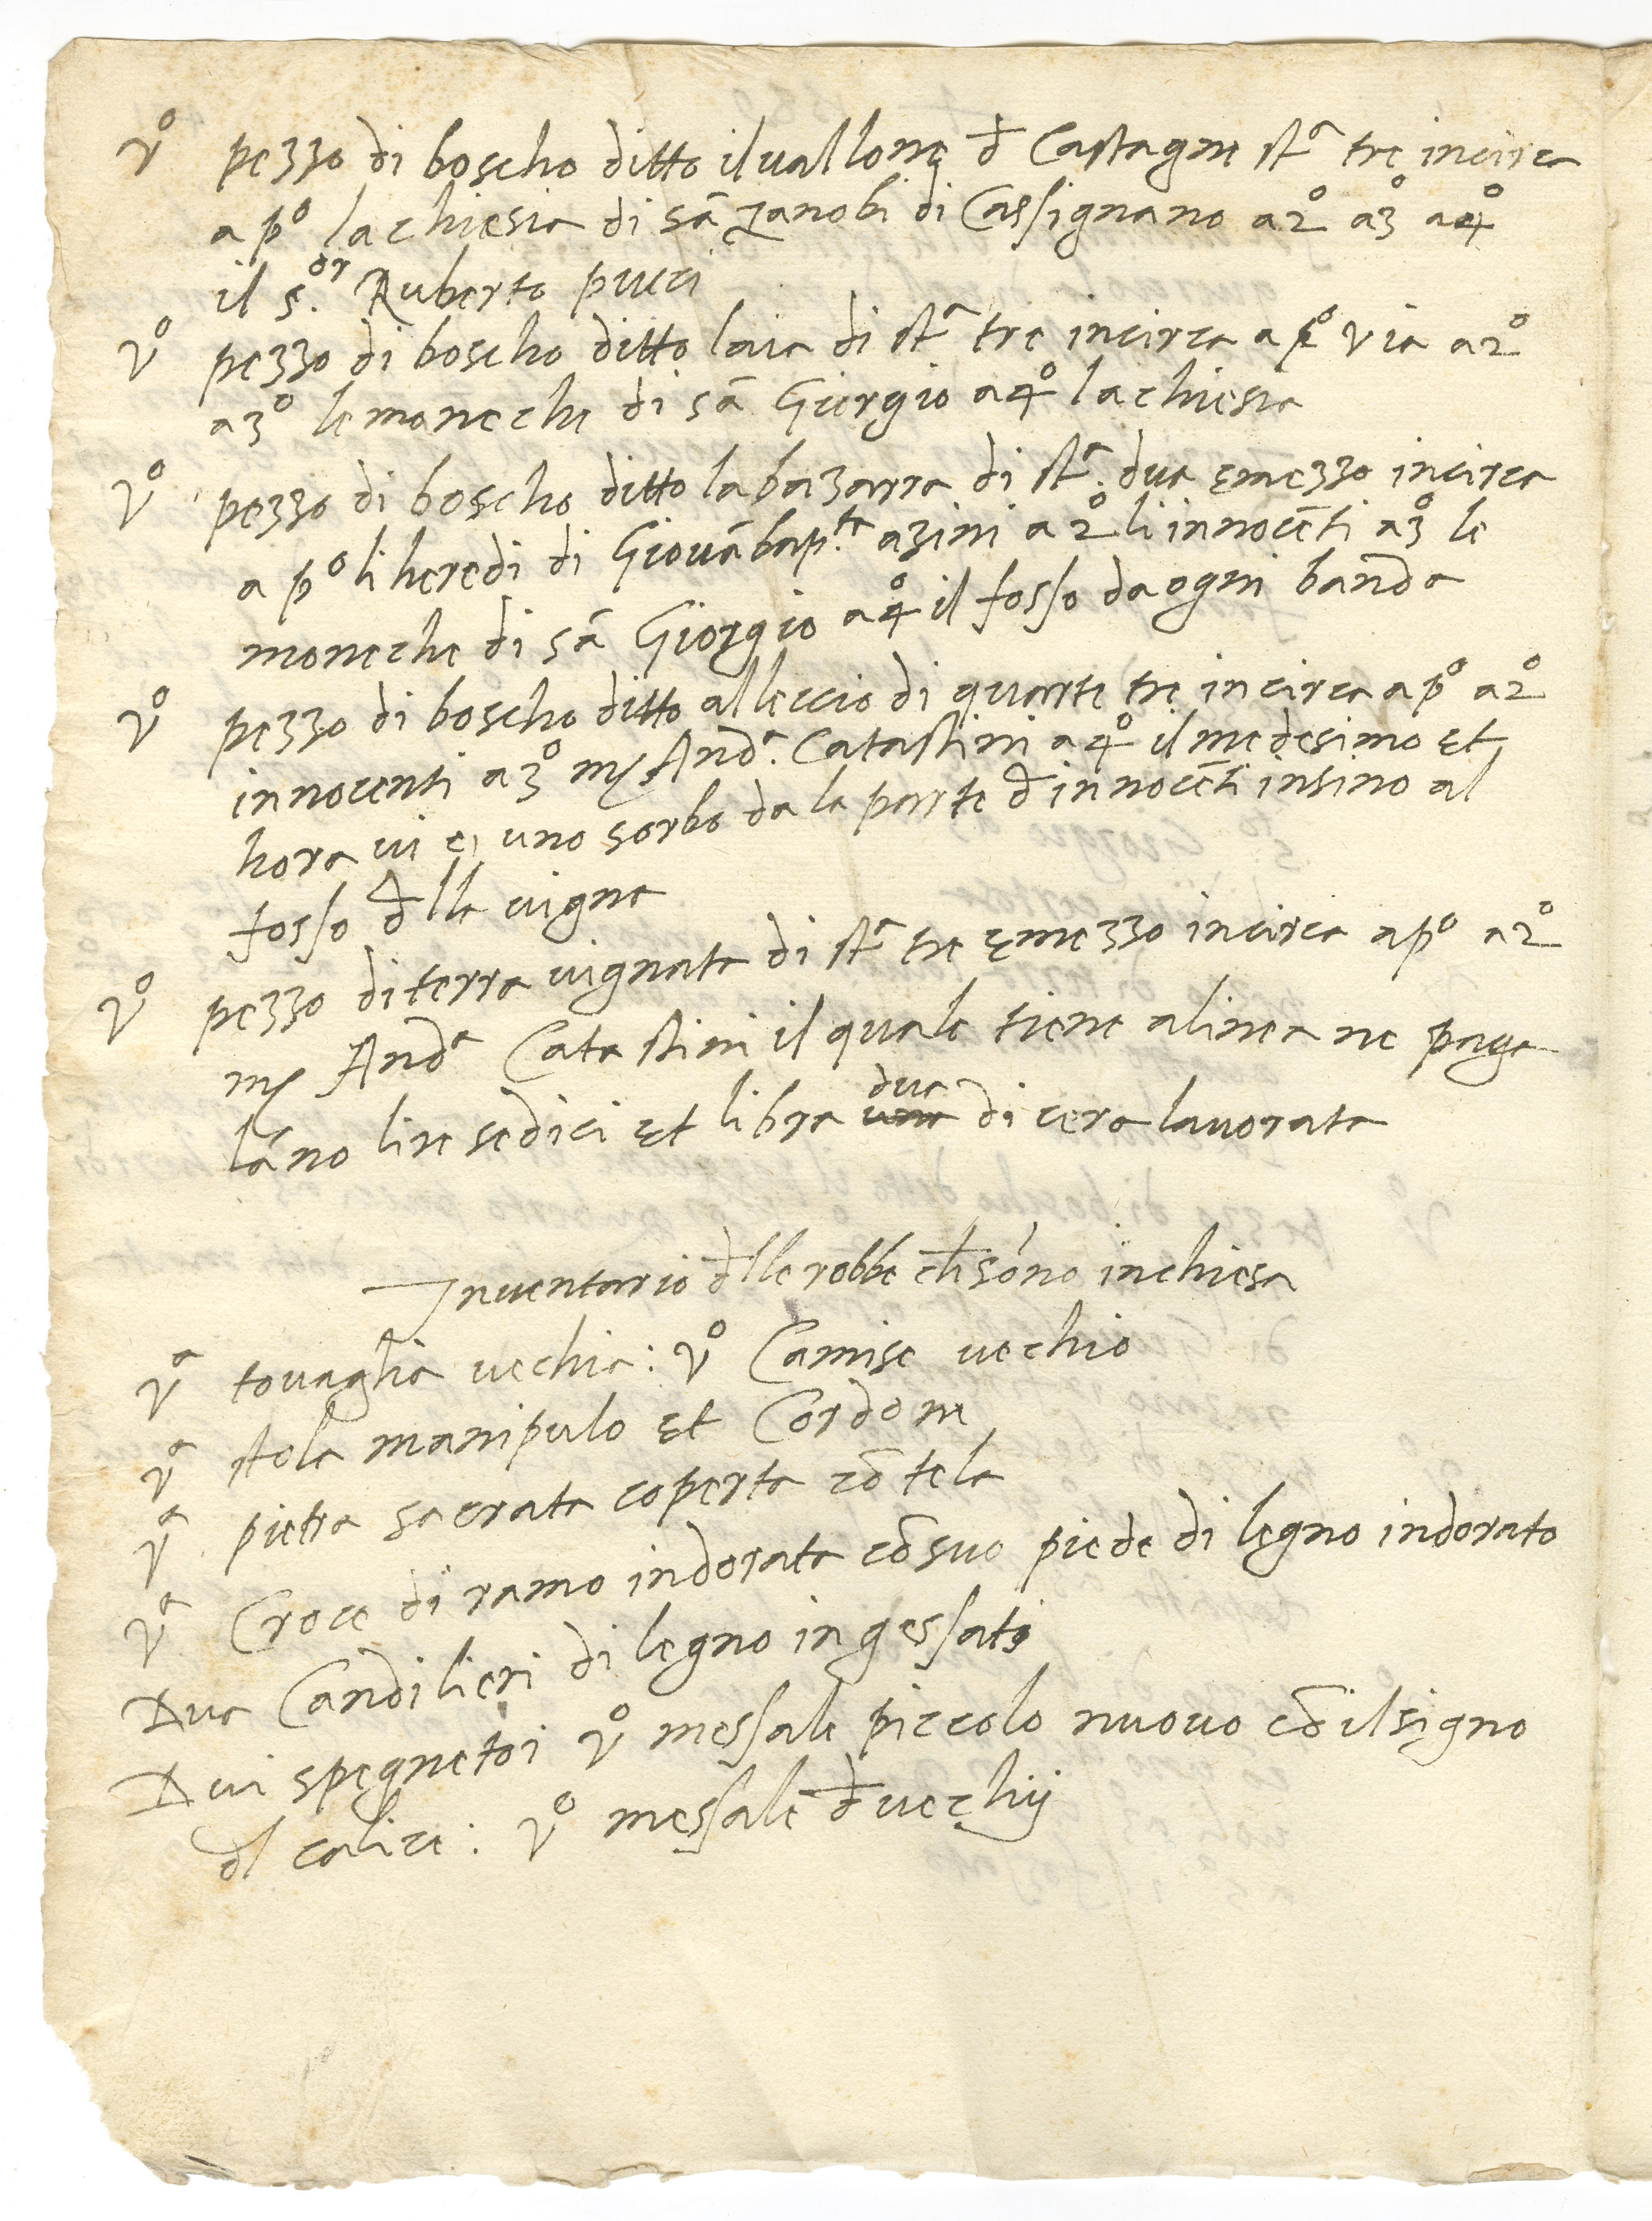 vº pezzo di boscho ditto il uallone đ Castagne stª tre incirca
a pº la chiesia di sā zanobi di Cassignano a 2º a 3º a 4º
il s.or Ruberto pucci
vº pezzo di boscho ditto laia di stª tre incirca a pº via a 2º
a 3º le moneche di sā Giorgio a 4º la chiesia
vº pezzo di boscho ditto la bazarra di stª. dua e mezzo incirca
a pº li heredi di Giouābap.ta azini a 2º li innocēti a 3º le
moneche di sā Giorgio a 4º il fosso da ogni banda
vº pezzo di boscho ditto al leccio di quarte tre incirca a pº a 2º
innocenti a 3º mʃ Andª. Catastini a 4º il medesimo et
hora ui e, uno sorbo da la parte đ innocēti insino al
fosso đlla uigna
vº pezzo di terra uignata di stª tre e mezzo incirca a pº a 2º
mʃ Andª Catastini il quale tiene a linea ne paga
lāno lire sedici et libra una dua di cera lauorata
Inuentario đlle robbe ch̄ sono in chiesa
vª touaglia uechia: vº Camise uechio
vª stola manipulo et Cordone
vª pietra sacrata coperta cō tela
vª Croce di ramo indorata cō suo piede di legno indorato
Dua Candilieri di legno ingessati
Dui spegnetoi vº messale piccolo nuouo cō il signo
đl calice: vº messale đ uechij